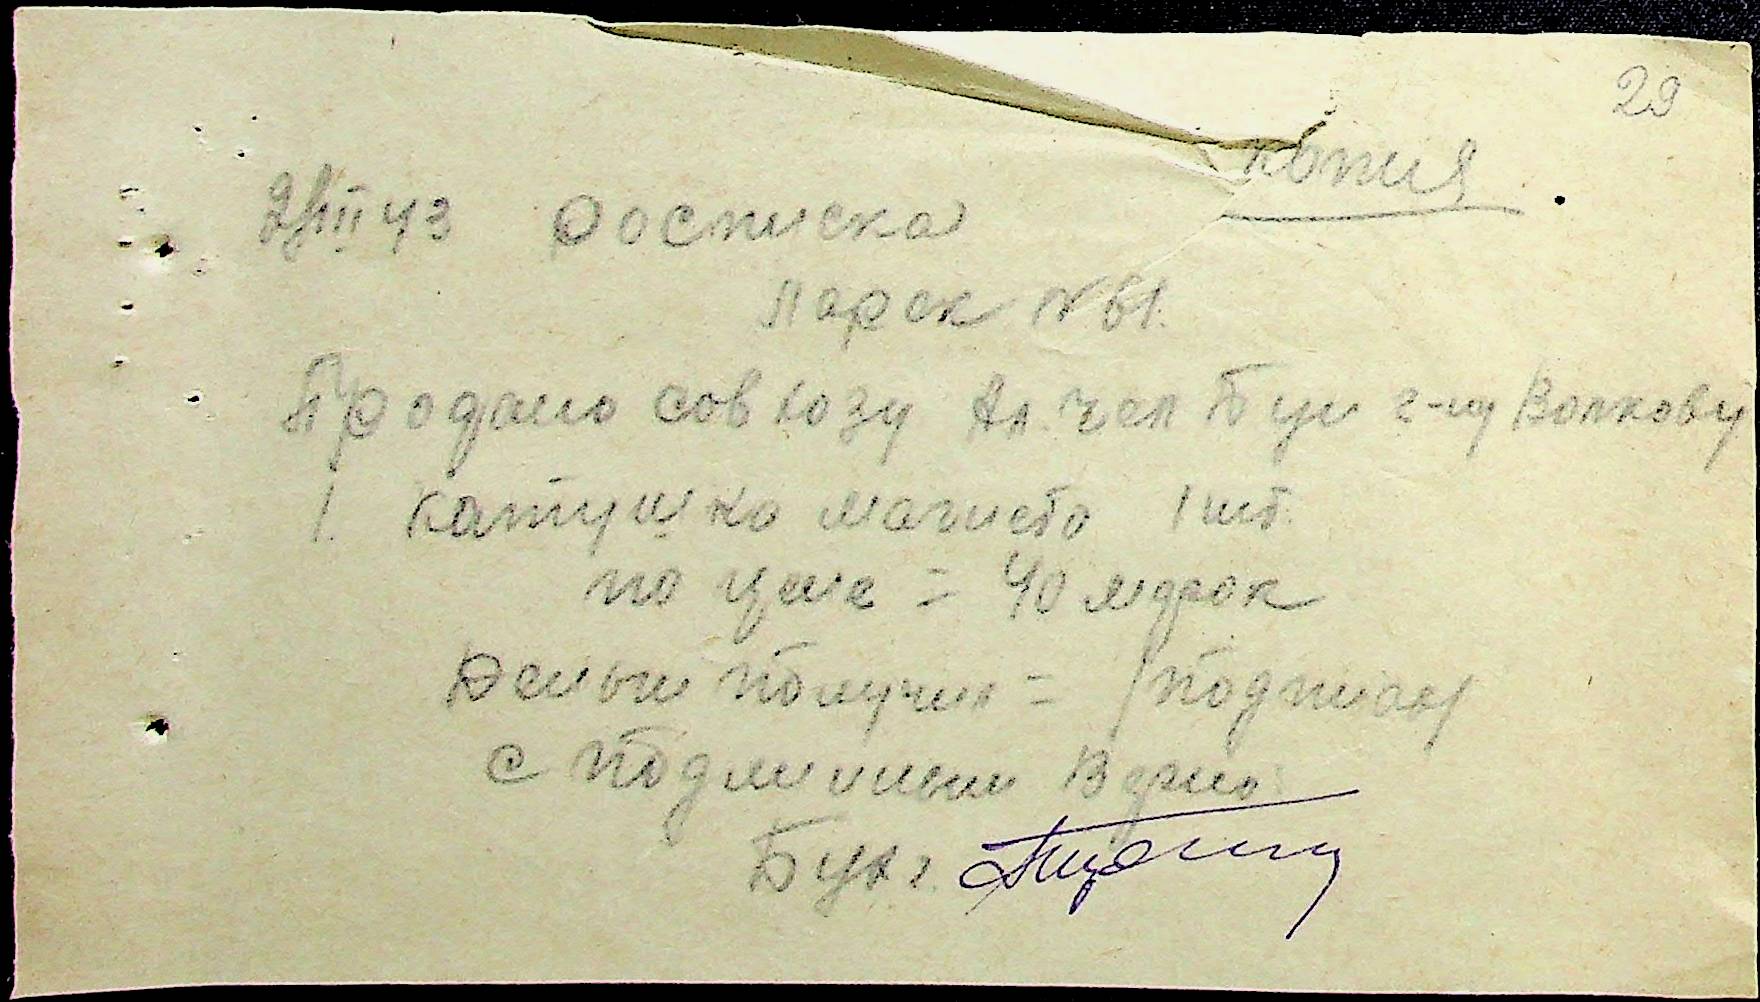 29
копия
2/III 43 Росписка
Парек № 61.
Продано совхозу Ал. Чеп Буи г-ну Волкову
1. Катушка магнето 1 шт.
по цене = 40 марок
Деньги получил = /подпись/
с подлинным Верно:
Бухг.